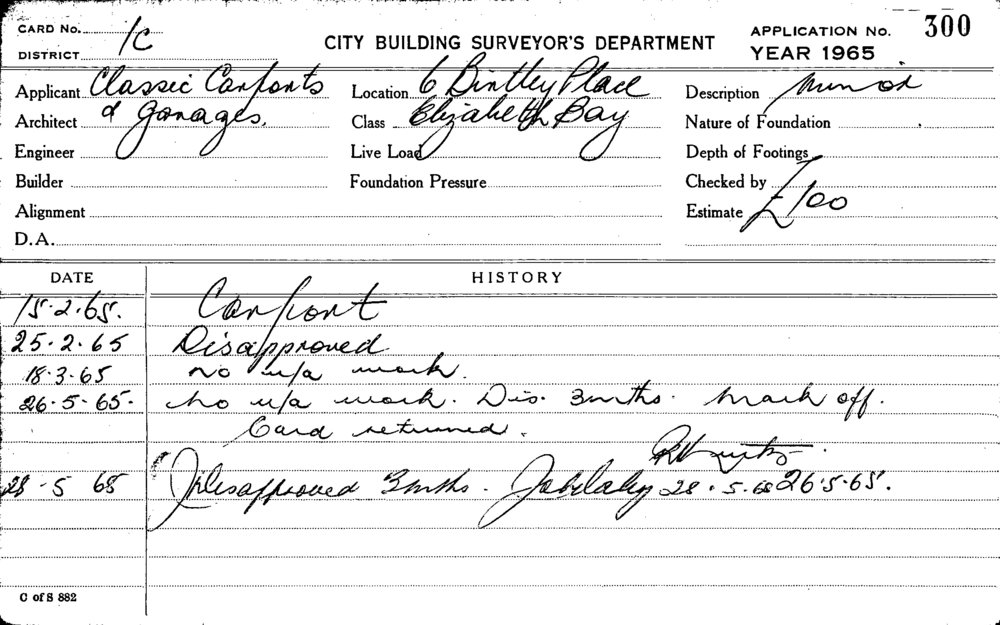 CARD No. 1C
DISTRICT
CITY BUILDING SURVEYOR'S DEPARTMENT
APPLICATION No. 300
YEAR 1965
Applicant Classic Carports
Architect & Garages.
Engineer
Builder
Alignment
D.A.
Location 6 Bintley Place
Class Elizabeth Bay
Live Load
Foundation Pressure
Description Minor
Nature of Foundation
Depth of Footings
Checked by
Estimate £100
DATE HISTORY
15.2.65. Carport
25.2.65 Disapproved
18.3.65 No u/a work.
26.5.65. No u/a work. Dis. 3mths. Mark off.
Card returned.
26.5.65.
28.5 65 Disapproved 3mths. 28.5.65
C of S 882